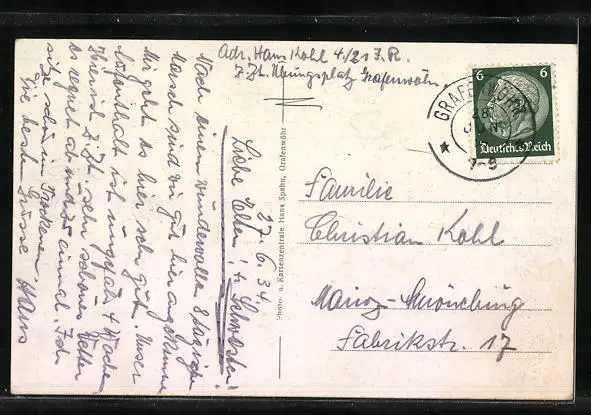 Adr. Hans Kohl 4./21 J.R.
z. Zt. Übungsplatz Grafenwöhr.
27.6.34.
Liebe Eltern u. Schwester!
Nach einem wundervollen 8 tägigen
Marsch sind wir gut hier angekommen
Mir geht es hier sehr gut. Unser
Aufenthalt ist ungefähr 4 Wochen
Hier ist z. Zt. sehr schönes Wetter
es regnet ab und zu einmal. Ich
sitze schön im Trockenen.
Die besten Grüsse Hans
Photo- u. Kartenzentrale Hans Spahn, Grafenwöhr
GRAFENWÖHR
28.
JUN
7-8
6 6
Deutsches Reich
Familie
Christian Kohl
Mainz-
Fabrikstr. 17